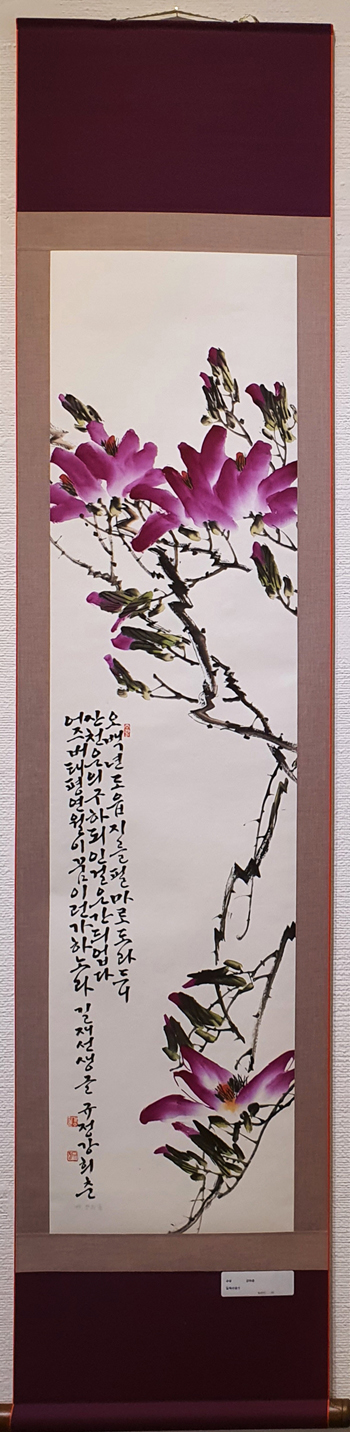 오백년도읍지를필마로도라드니
산천은의구하되인걸은간듸업다
어즈버태평연월이꿈이런가하노라 길재선생글 규정강희춘